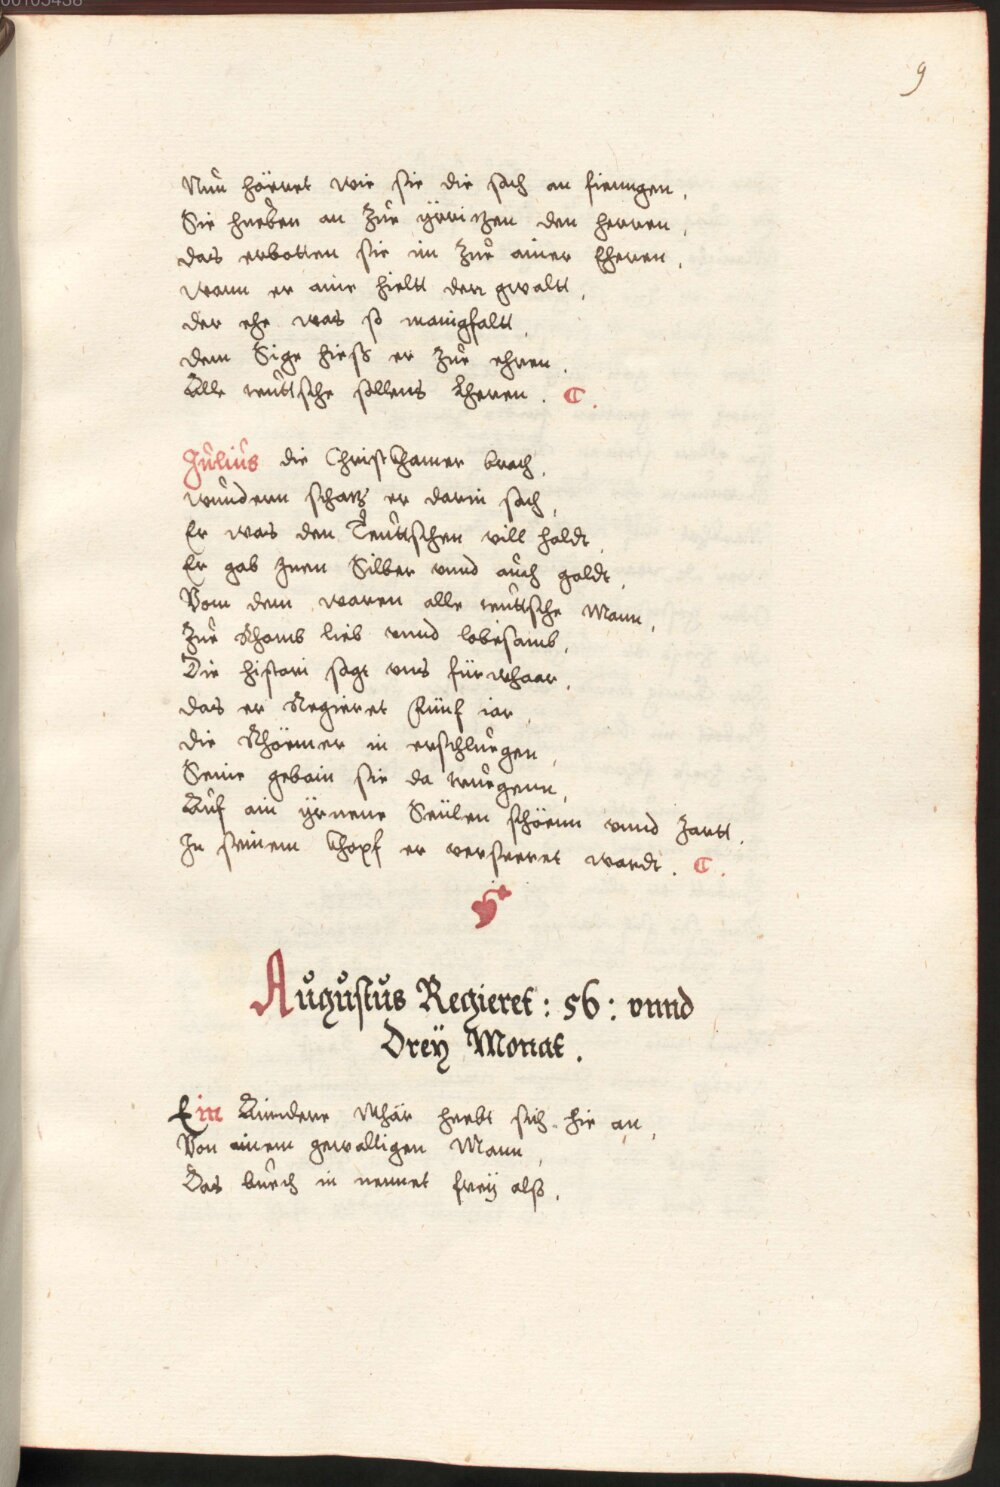 00105438
9
Nun hörret wie sie die sach an fienngen,
Sie hueben an zue yrritzen den herren,
das erbotten sie im zue ainer Eheren,
wann er aine hieltt den gwaltt,
der ehe was so manigfaltt,
dem Sige hieß er zue ehren,
Alle teuttsche sollens Lheren. C.
Julius die Christkhamer brach,
wundern schatz er darin sach,
Er was den Teuttschen vill holdt,
Er gab jnen Silber vnnd auch goldt,
Von dem waren alle teuttsche Mann,
Zue Rhomb lieb vnnd lobesamb,
Die histori sagt vns fürwhaar,
das er Regieret Fünf iar,
die Rhömer in erschluegen,
Seine gebain sie da truegenn,
Auf ain yrnene Seülen schöenn vnnd zartt,
In seinem Khopf er verseeret wardt. C.
Augustus Regieret: 56: vnnd
Drey Monat.
Ein Anndere Mhär hebt sich hie an,
Von ainem gewalltigen Mann,
Das buech in nennet frey alß,